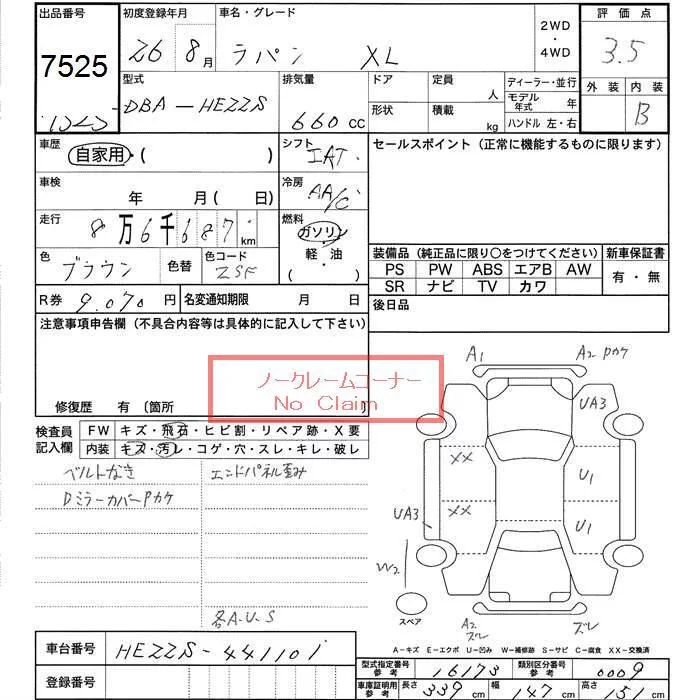 出品番号 初度登録年月 車名・グレード 2WD・4WD 評価点
7525 26 8月 ラパン XL 3.5
型式 排気量 ドア 定員 人 ディーラー・並行 外装 内装
DBA-HE22S 660cc 形状 積載 kg モデル年式 年 B
ハンドル 左・右
車歴 自家用・( ) シフト IAT セールスポイント(正常に機能するものに限ります)
車検 年 月( 日) 冷房 AA/C
走行 8万6千687km 燃料 ガソリン・軽油 ( )
色 ブラウン 色替 色コード ZSF
装備品(純正品に限り○をつけてください) 新車保証書
PS PW ABS エアB AW 有・無
SR ナビ TV カワ
R券 9.070円 名変通知期限 月 日 後日品
注意事項申告欄(不具合内容等は具体的に記入して下さい)
ノークレームコーナー
No Claim
修復歴 有(箇所 )
検査員記入欄 FW キズ・飛石・ヒビ割・リペア跡・X要
内装 キズ・汚レ・コゲ・穴・スレ・キレ・破レ
ベルトなき エンドパネル歪み
DミラーカバーPカケ
各A.U.S
A1 A2 Pカケ
UA3
XX U1
XX U1
UA3
W2
スペア A2 ズレ ズレ
A-キズ E-エクボ U-凹み W-補修跡 S-サビ C-腐食 XX-交換済
車台番号 HE22S-441101
登録番号
型式指定番号 参考 16173 類別区分番号 参考 0009
車庫証明用 参考 長さ 339cm 幅 147cm 高さ 151cm